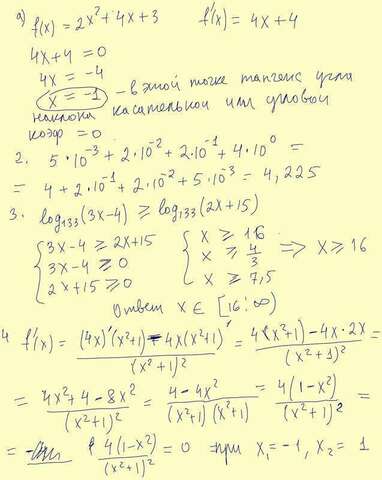 а) f(x) = 2x² + 4x + 3   f'(x) = 4x + 4
4x + 4 = 0
4x = -4
x = -1 - в этой точке тангенс угла
наклона касательной или угловой
коэф = 0
2. 5·10⁻³ + 2·10⁻² + 2·10⁻¹ + 4·10⁰ =
= 4 + 2·10⁻¹ + 2·10⁻² + 5·10⁻³ = 4,225
3. log₁₃₃(3x-4) ≥ log₁₃₃(2x+15)
{ 3x-4 ≥ 2x+15   { x ≥ 16
3x-4 ≥ 0   x ≥ 4/3 => x ≥ 16
2x+15 ≥ 0   x ≥ 7,5
Ответ x ∈ [16; ∞)
4 f'(x) = ((4x)'(x²+1) - 4x(x²+1)')/(x²+1)² = (4(x²+1) - 4x·2x)/(x²+1)² =
= (4x² + 4 - 8x²)/(x²+1)² = (4-4x²)/((x²+1)(x²+1)) = 4(1-x²)/(x²+1)² =
= 4(1-x²)/(x²+1)² = 0 при x₁ = -1, x₂ = 1